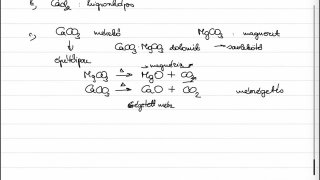 c, CaCO₃ mészkő MgCO₃ : magnezit
CaCO₃·MgCO₃ dolomit
építőipar
MgCO₃ →Δ MgO + CO₂
CaCO₃ →Δ CaO + CO₂ mészégetés
égetett mész